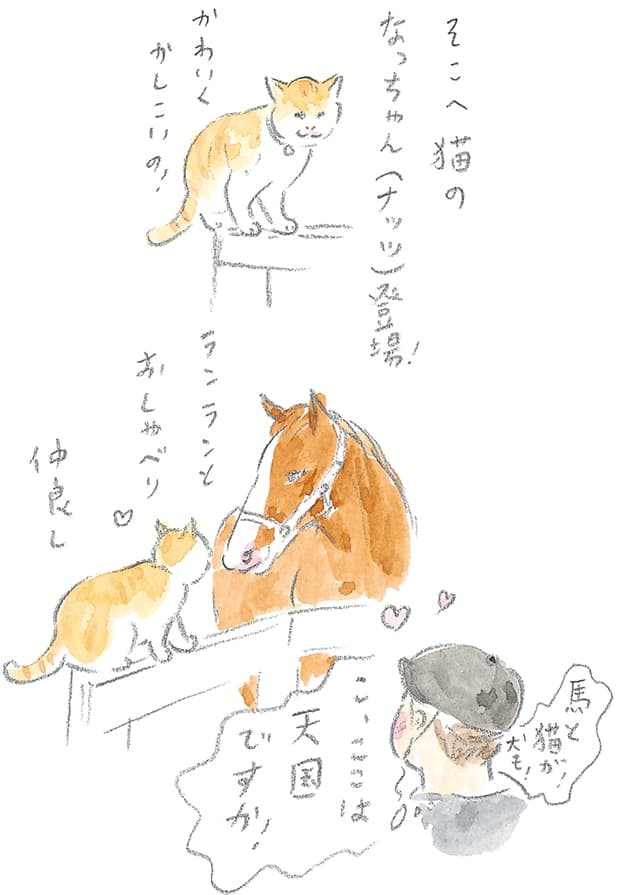 そこへ猫の
なっちゃん(ナッツ)登場!
かわいく
かしこいの!
ランランと
おしゃべり
仲良し
馬と
猫が!
犬も!
こ、ここは
天国
ですか!